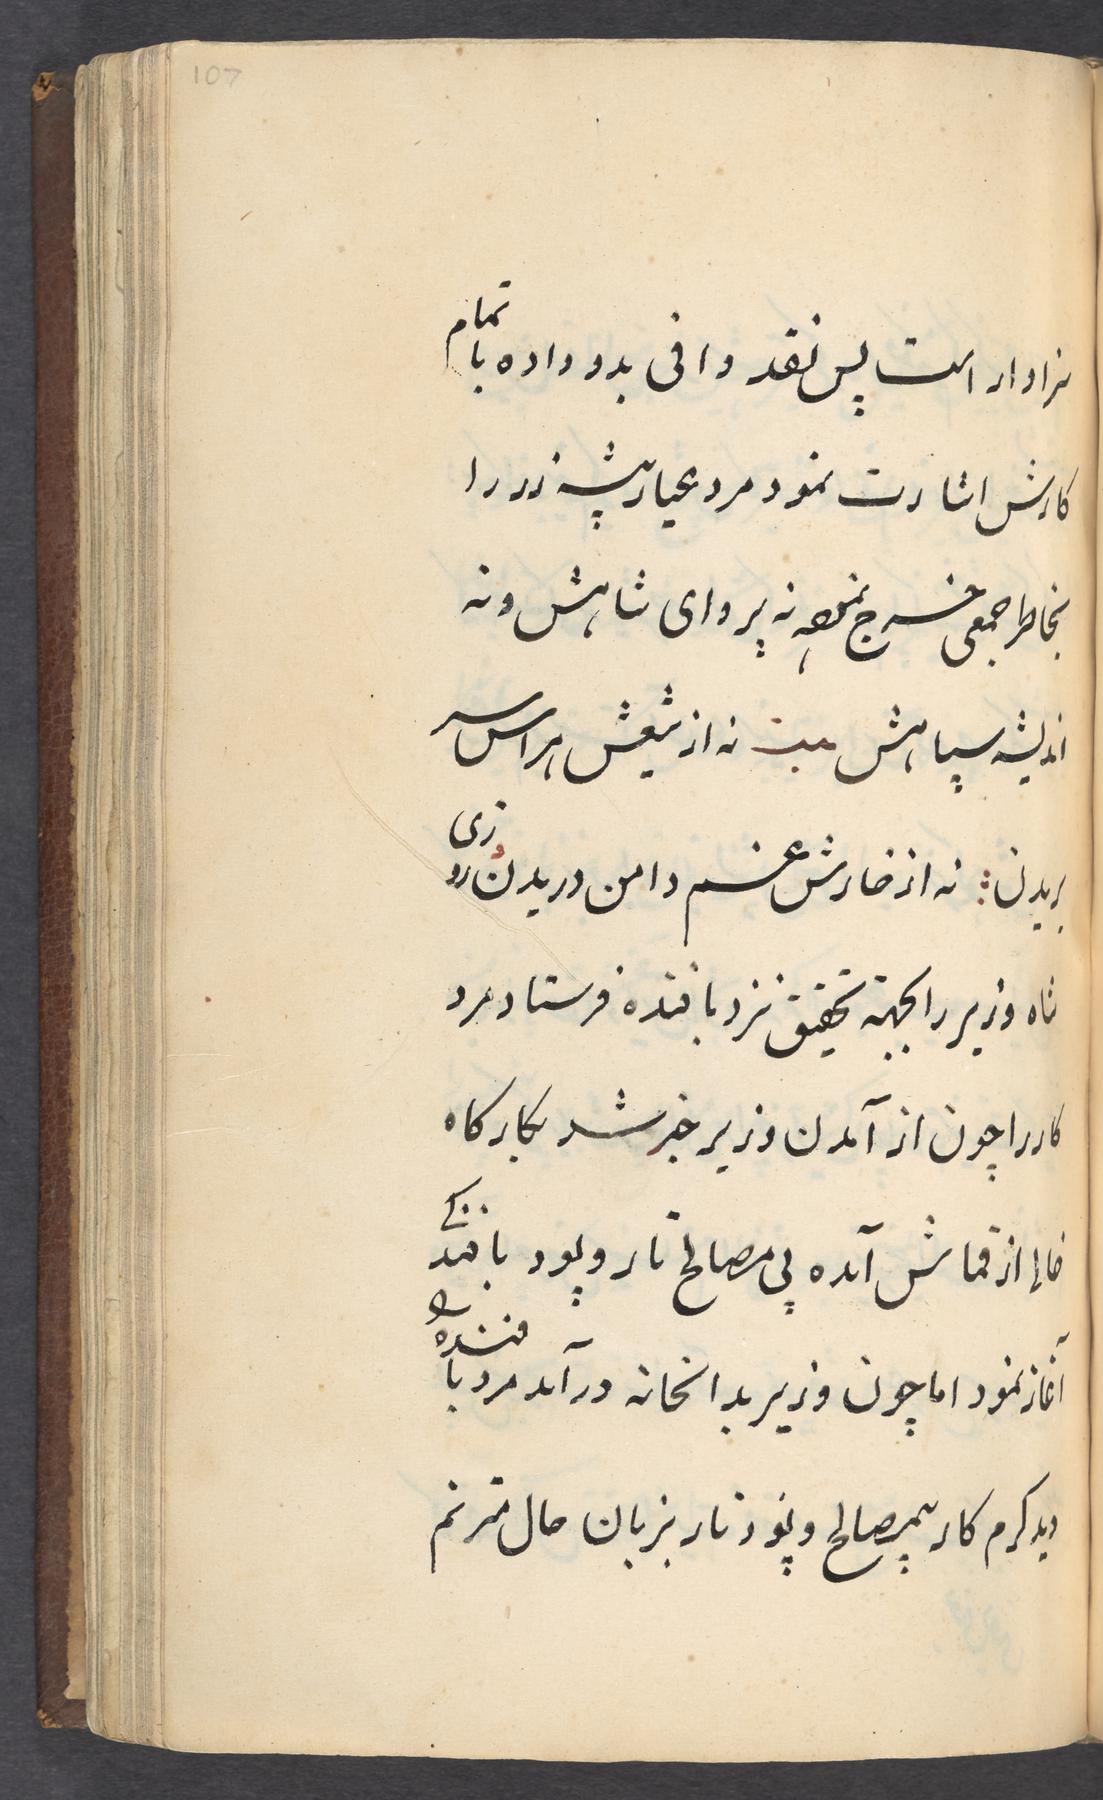 107
سزاوار است پس نقد وافی بدو داده باتمام
کارش اشارت نمود مرد عیارپیشه زر را
بخاطر جمعی خرج نموده نه پروای شاهش و نه
اندیشه سپاهش بیت نه از تیغش هراس سر
بریدن : نه از خارش غم دامن دریدن روزی
شاه وزیر را بجهته تحقیق نزد بافنده فرستاد مرد
کار را چون از آمدن وزیر خبر شد بکارکاه
خالی از قماش آمده بی مصالح تار و پود بافندکی
آغاز نمود اما چون وزیر بدانخانه درآمد مرد بافنده را
دید کرم کار بیمصالح و پود تار بزبان حال مترنم